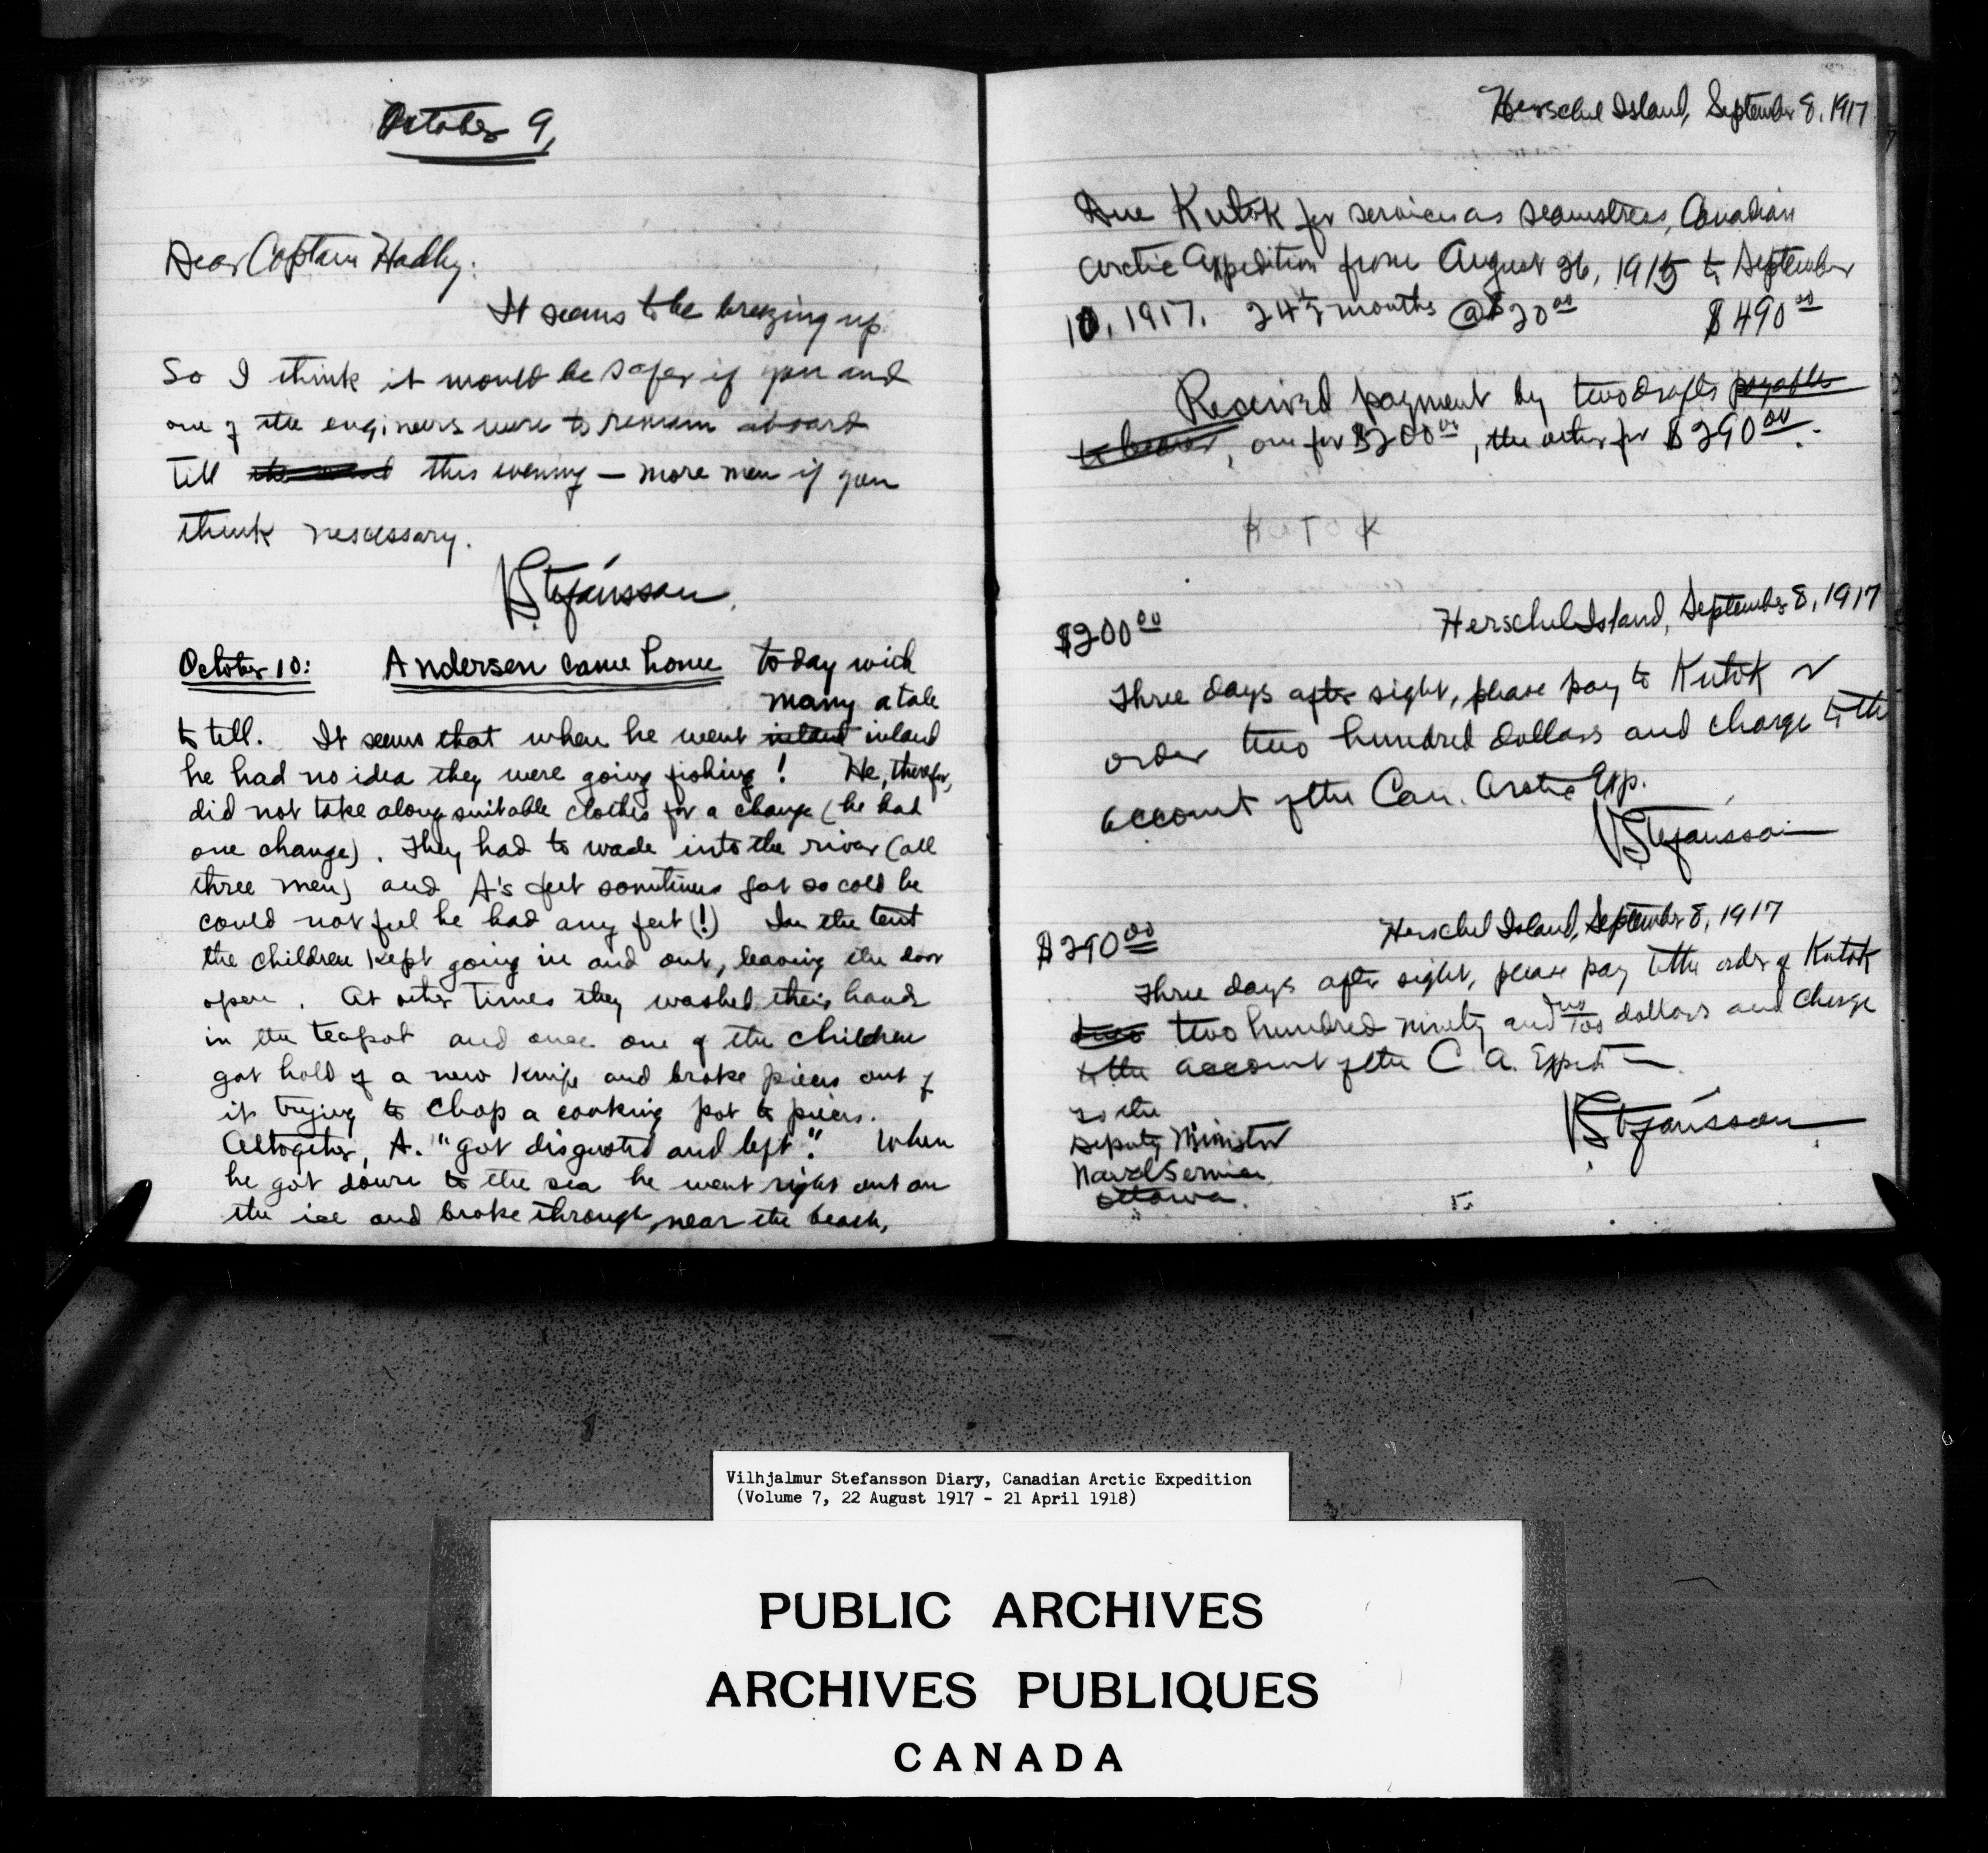 October 9,
Dear Captain Hadley:
It seems to be breezing up
So I think it would be safer if you and
one of the engineers were to remain aboard
till this evening — more men if you
think nescessary.
VStefánsson.
October 10: Andersen came home today with
many a tale
to tell. It seems that when he went inland inland
he had no idea they were going fishing! He, therefor,
did not take along suitable clothes for a change (he had
one change). They had to wade into the river (all
three men) and A's feet sometimes got so cold he
could not feel he had any feet (!) In the tent
the children kept going in and out, leaving the door
open. At other times they washed their hands
in the teapot and once one of the children
got hold of a new knife and broke pieces out of
it trying to chop a cooking pot to pieces.
Altogether, A. "got disgusted and left." When
he got down to the sea he went right out on
the ice and broke through, near the beach,
Herschel Island, September 8, 1917
Due Kutok for services as seamstress, Canadian
Arctic Expedition from August 26, 1915 to September
10, 1917. 24½ months @ $20.00 $490.00
Received payment by two drafts payable
to bearer, one for $200.00, the other for $290.00.
KUTOK
Herschel Island, September 8, 1917
$200.00
Three days after sight, please pay to Kutok or
order two hundred dollars and charge to the
account of the Can. Arctic Exp.
VStefánsson
Herschel Island, September 8, 1917
$290.00
Three days after sight, please pay to the order of Kutok
two two hundred ninety and no/100 dollars and charge
to the account of the C. A. Exped—
To the
Deputy Minister
Naval Service
Ottawa.
VStefánsson
Vilhjalmur Stefansson Diary, Canadian Arctic Expedition
(Volume 7, 22 August 1917 - 21 April 1918)
PUBLIC ARCHIVES
ARCHIVES PUBLIQUES
CANADA